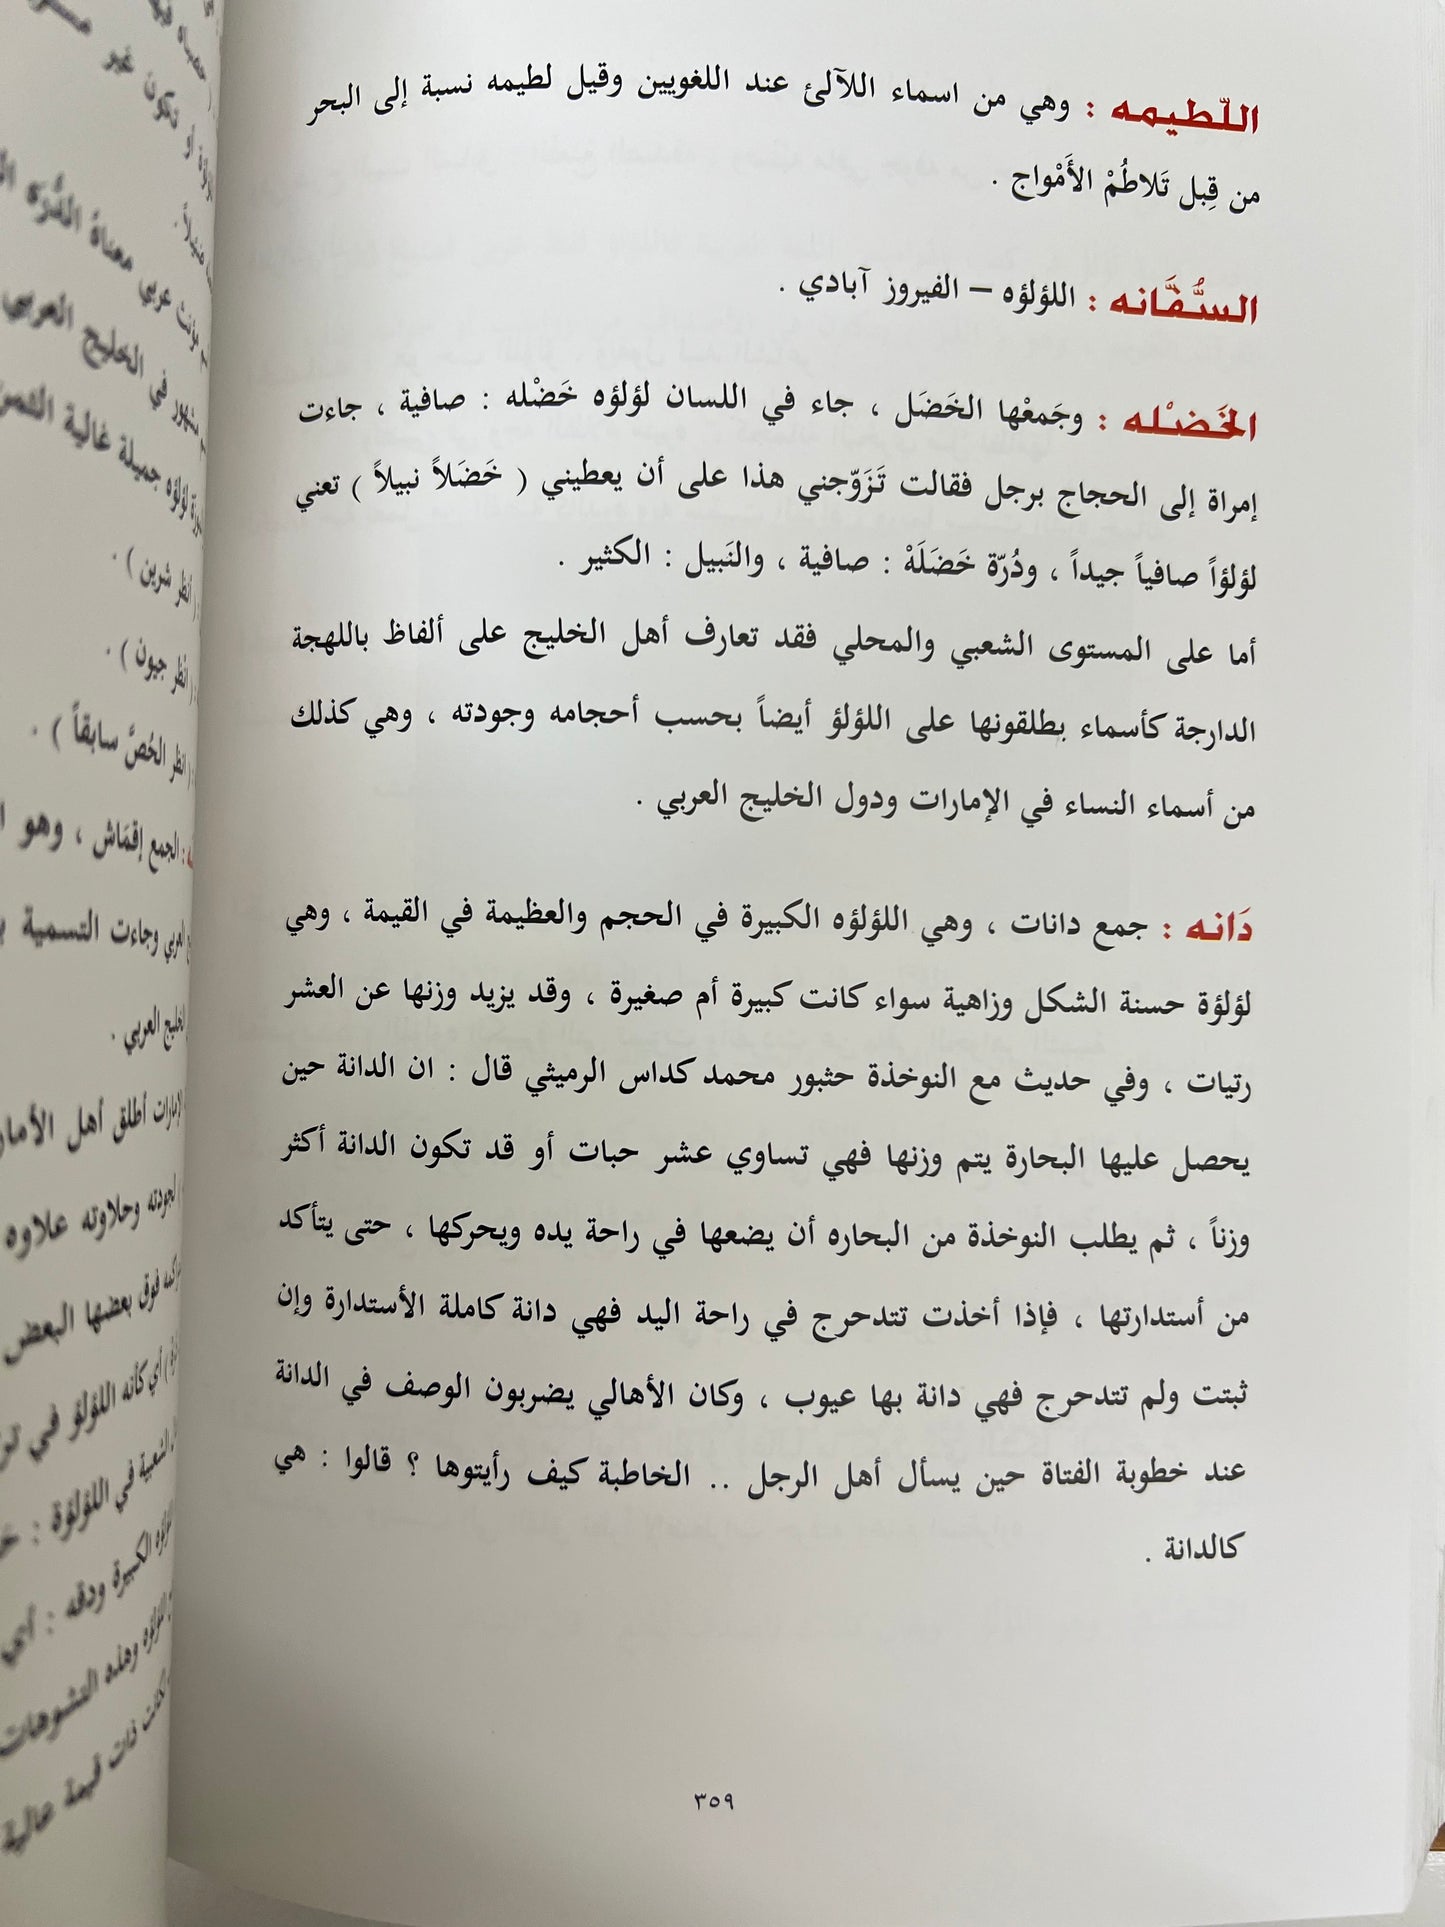 اللّطيمه : وهي من اسماء اللآلئ عند اللغويين وقيل لطيمه نسبة إلى البحر
من قِبل تَلاطُمْ الأَمْواج .
السُّفَّانه : اللؤلؤه – الفيروز آبادي .
الخَضْله : وجَمعْها الخَضَل ، جاء في اللسان لؤلؤه خَضْله : صافية ، جاءت
إمراة إلى الحجاج برجل فقالت تَزَوّجني هذا على أن يعطيني ( خَضَلاً نبيلاً ) تعني
لؤلؤاً صافياً جيداً ، ودُرّة خَضَلَهْ : صافية ، والنَبيل : الكثير .
أما على المستوى الشعبي والمحلي فقد تعارف أهل الخليج على ألفاظ باللهجة
الدارجة كأسماء يطلقونها على اللؤلؤ أيضاً بحسب أحجامه وجودته ، وهي كذلك
من أسماء النساء في الإمارات ودول الخليج العربي .
دَانه : جمع دانات ، وهي اللؤلؤه الكبيرة في الحجم والعظيمة في القيمة ، وهي
لؤلؤة حسنة الشكل وزاهية سواء كانت كبيرة أم صغيرة ، وقد يزيد وزنها عن العشر
رتيات ، وفي حديث مع النوخذة حثبور محمد كداس الرميثي قال : ان الدانة حين
يحصل عليها البحارة يتم وزنها فهي تساوي عشر حبات أو قد تكون الدانة أكثر
وزناً ، ثم يطلب النوخذة من البحاره أن يضعها في راحة يده ويحركها ، حتى يتأكد
من أستدارتها ، فإذا أخذت تتدحرج في راحة اليد فهي دانة كاملة الأستدارة وإن
ثبتت ولم تتدحرج فهي دانة بها عيوب ، وكان الأهالي يضربون الوصف في الدانة
عند خطوبة الفتاة حين يسأل أهل الرجل .. الخاطبة كيف رأيتوها ؟ قالوا : هي
كالدانة .
٣٥٩